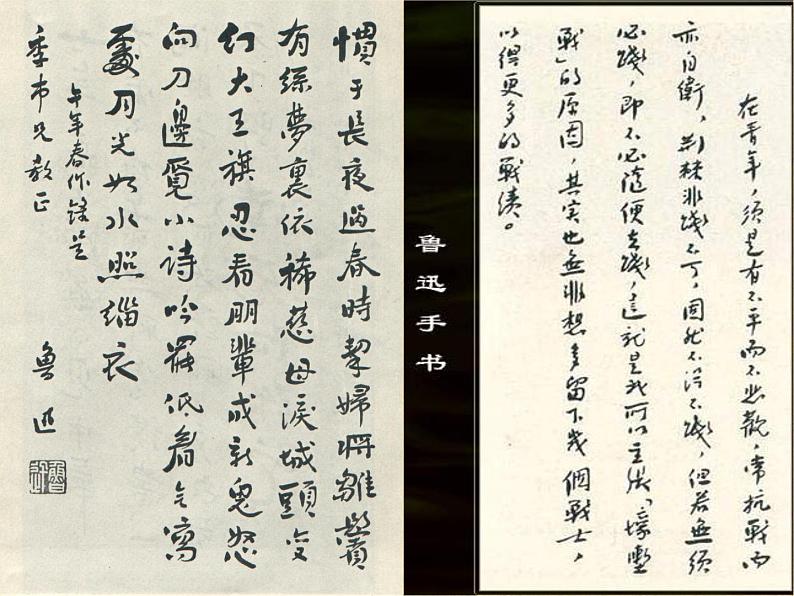 慣于長夜過春時挈婦將雛鬢
有絲夢裏依稀慈母淚城頭變
幻大王旗忍看朋輩成新鬼怒
向刀邊覓小詩吟罷低眉无寫
處月光如水照緇衣
午年春作錄呈
季巿兄教正
魯迅
魯迅手书
在青年,須是有不平而不悲觀,常抗戰而
亦自衛,荆棘非踐不可,固然不得不踐,但若無須
必踐,即不必隨便去踐,這就是我所以主張「壕塹
戰」的原因,其實也無非想多留下幾個戰士,
以得更多的戰績。